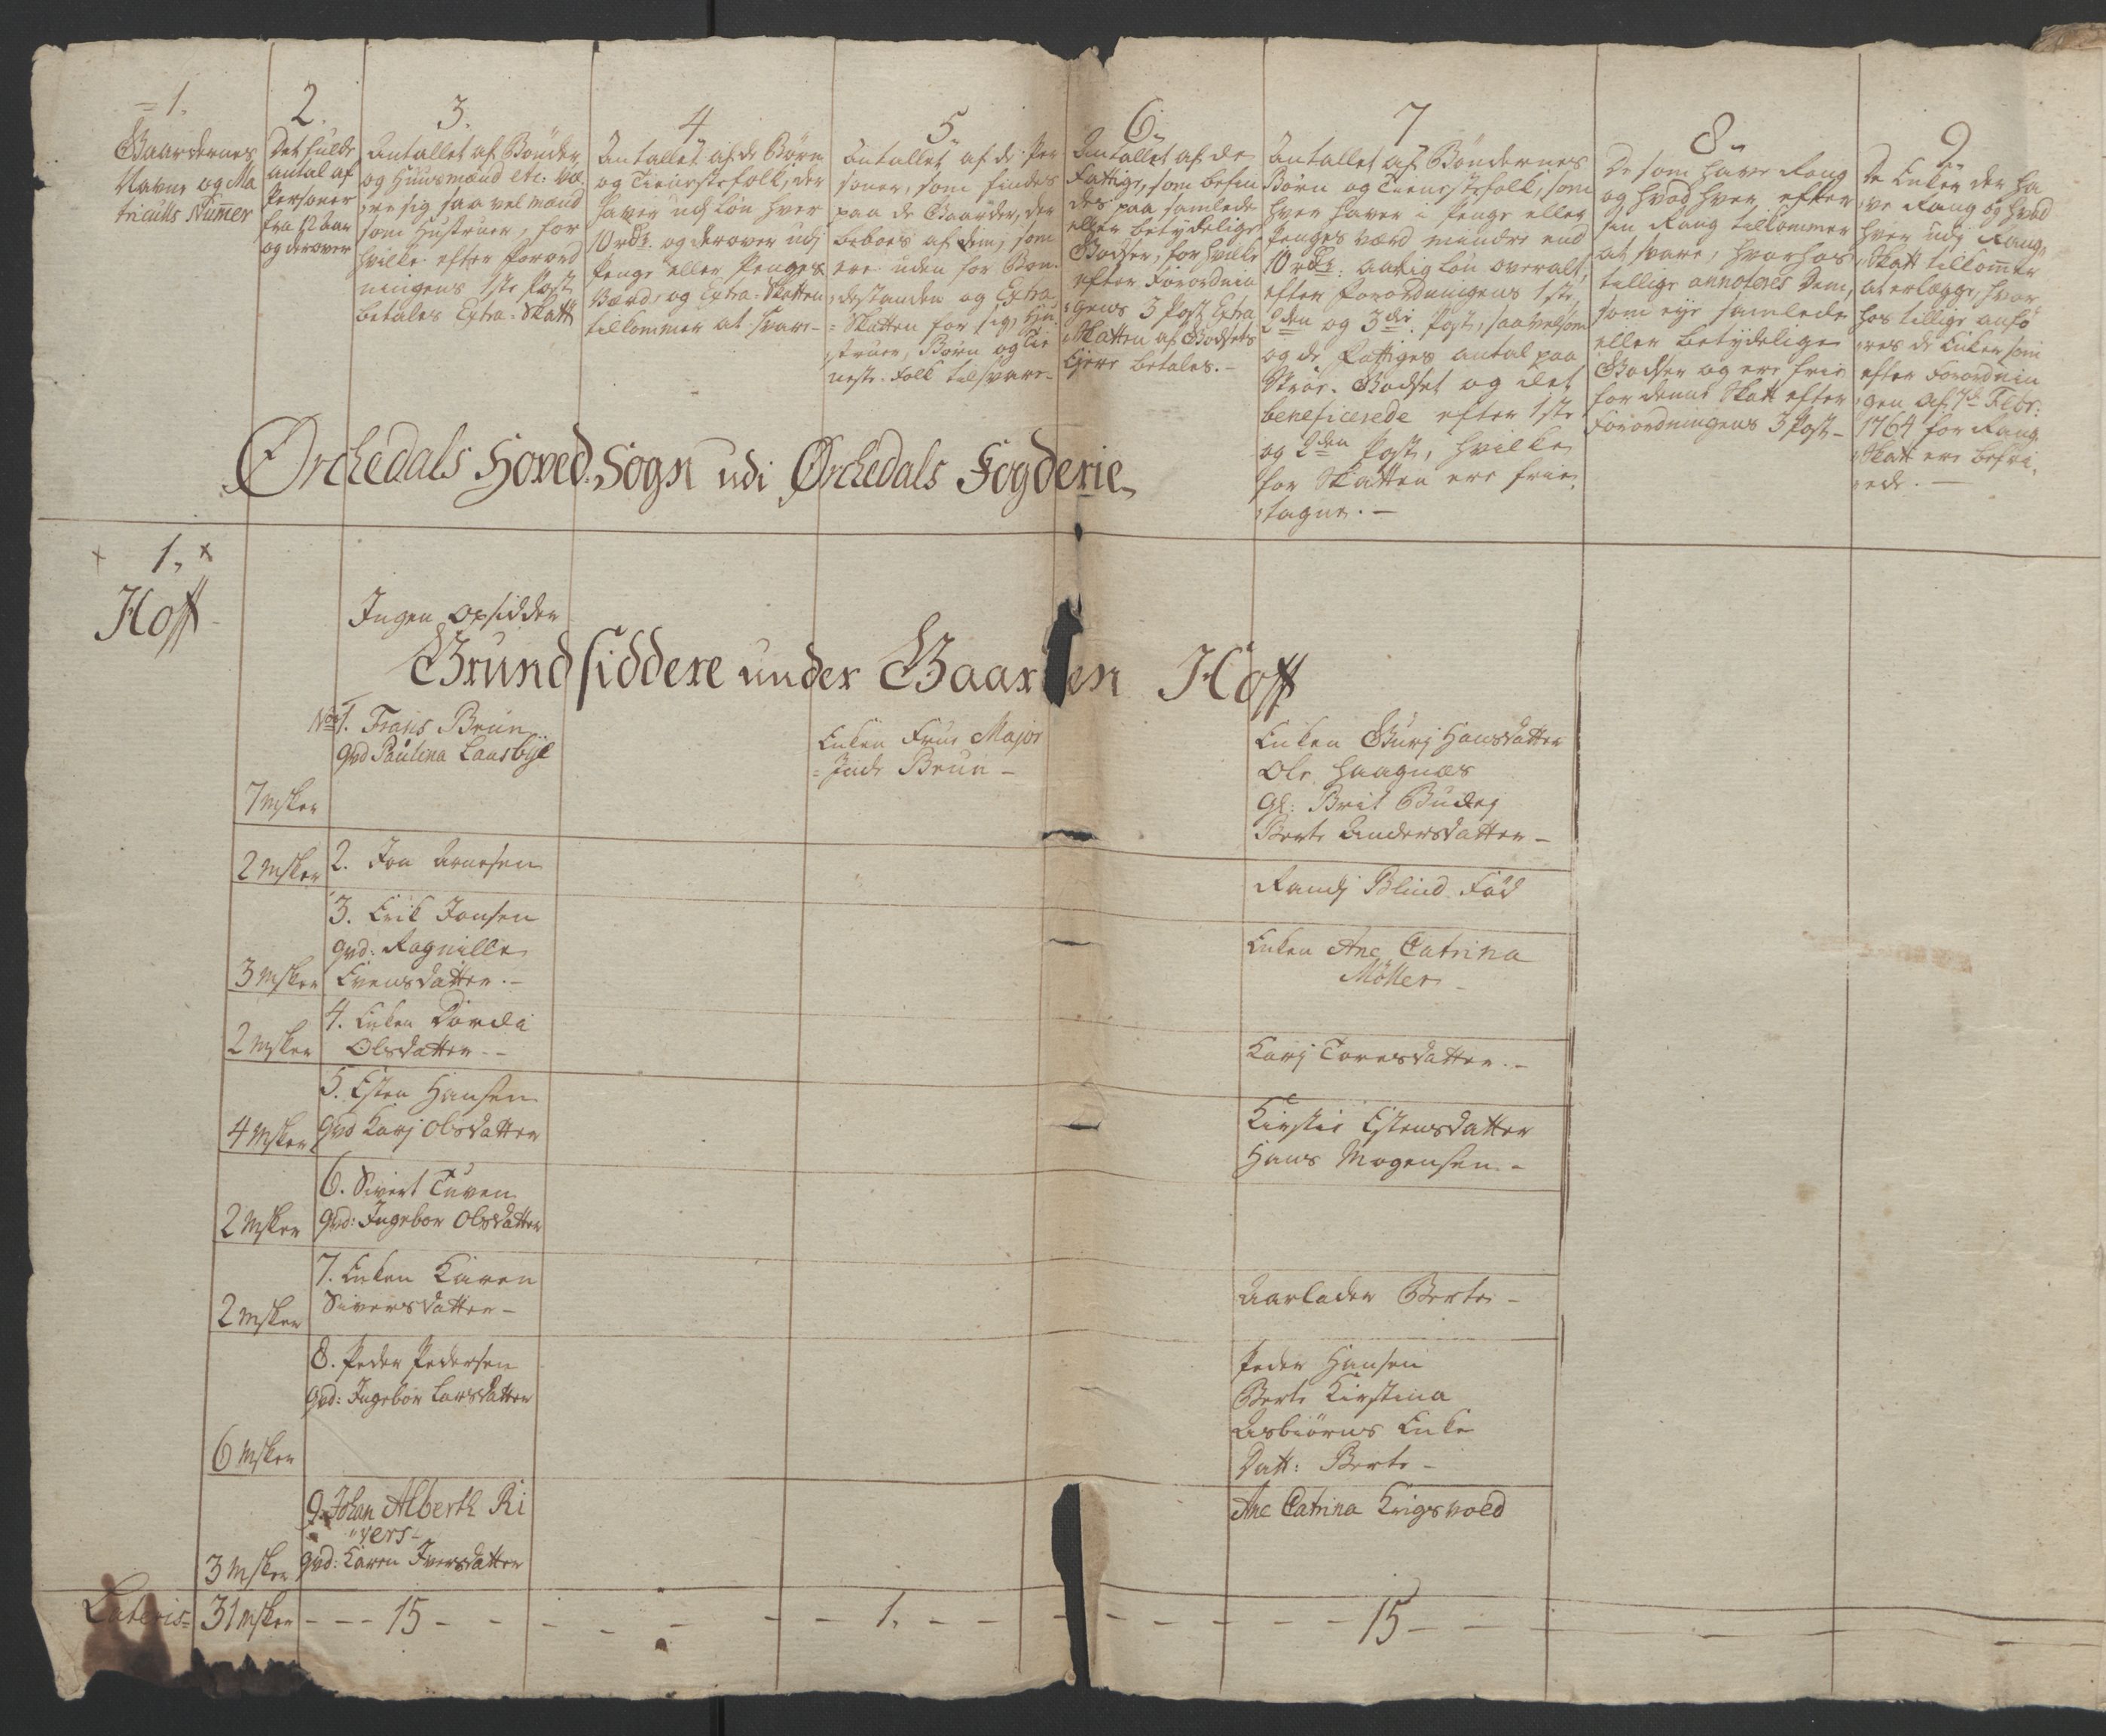 1.
Gaardernes
Navne og Ma
triculls Num̄er
2.
Det fulde
Antal af
Personer
fra 12 Aar
og derover
3.
Antallet af Bønder
og Huusmænd etc: væ,
,re sig saa vel mænd
som Hustruer, for
hvilke efter Forord
ningens 1ste Post
betales Extra-Skatt
4.
Antallet af de Børn
og Tienistefolk, der
haver udj Løn hver
10 rdlr. og derover udj
Penge eller Penges
Værd, og Extra-Skatten
tilkommer at svare-
5.
Antallet af de Per
soner, som findes
paa de Gaarder, der
beboes af dem, som
ere uden for Bon-
destanden og Extra
=Skatten for sig, Hu-
struer, Børn og Tie
neste-Folk tilsvare-
6.
Antallet af de
Fattige, som befin
des paa samlede
eller betydelige
Godser, for hvilke
efter Forordnin
gens 3 Post Extra
Skatten af Godsets
Ejere betales.-
7
Antallet af Bøndernes
Børn og Tienistefolk, som
hver haver i Penge eller
Penges værd mindre end
10 rdlr: aarlig Løn overalt,
efter Forordningens 1ste,
2den og 3die Post, saavelsom
og de Fattiges antal paa
Strøe-Godset og det
beneficerede efter 1ste
og 2den Post, hvilke
for Skatten ere frie,
,tagne.-
8.
De som have Rang
og hvad hver efter
sin Rang tilkommer
at svare, hvorhos
tillige annoteres Dem,
som eye samlede
eller betydelige
Godser og ere frie
for denne Skatt efter
Forordningens 3 Post-
9.
De Enker der ha
,ve Rang og hvad
hver udj Rang,
,Skatt tilkom̄er
at erlægge, hvor
hos tillige anfø
,res de Enker som
efter Forordnin
gen af 7de Febr:
1764 for Rang
,Skatt ere befri,
,ede.-
Ørchedals Hoved-Sogn udi Ørchedals Fogderie
1.
Hoff
Ingen Opsidder
Grundsiddere under Gaarden Hoff
7 Msker
No 1. Frans Brun
Qvd Paulina Laasbye
Enken Frue Major
=Inde Brun-
Enken Gurj Hansdatter
Ole Haagnæs
Gl: Brit Budej
Berte Andersdatter-
2 Msker
2. Jon Arnesen
Randj Blind Fød
3 Msker
3. Erik Jonsen
Qvd: Ragnille
Evensdatter.-
Enken Ane Catrina
Møller-
2 Msker
4. Enken Dordi
Olsdatter--
Karj Toresdatter.-
4 Msker
5. Esten Hansen
Qvd Karj Olsdatter
Kirstie Estensdatter
Hans Mogensen-
2 Msker
6. Sivert Tuven
Qvd: Ingebor Olsdatter
2 Msker
7. Enken Karen
Siversdatter-
Aarladen Berte-
6 Msker
8. Peder Pedersen
Qvd: Ingebor Larsdatter
Peder Hansen
Berte Kirstina
Asbiørns Enke
Datt: Berte-
3 Msker
9. Johan Alberth Ri
,,vers-
Qvd: Karen Iversdatter
Ane Catrina Krigsvold
Lateris= 31 Msker - - - 15 - - - - - - 1. - - - - - - - 15 - - - -